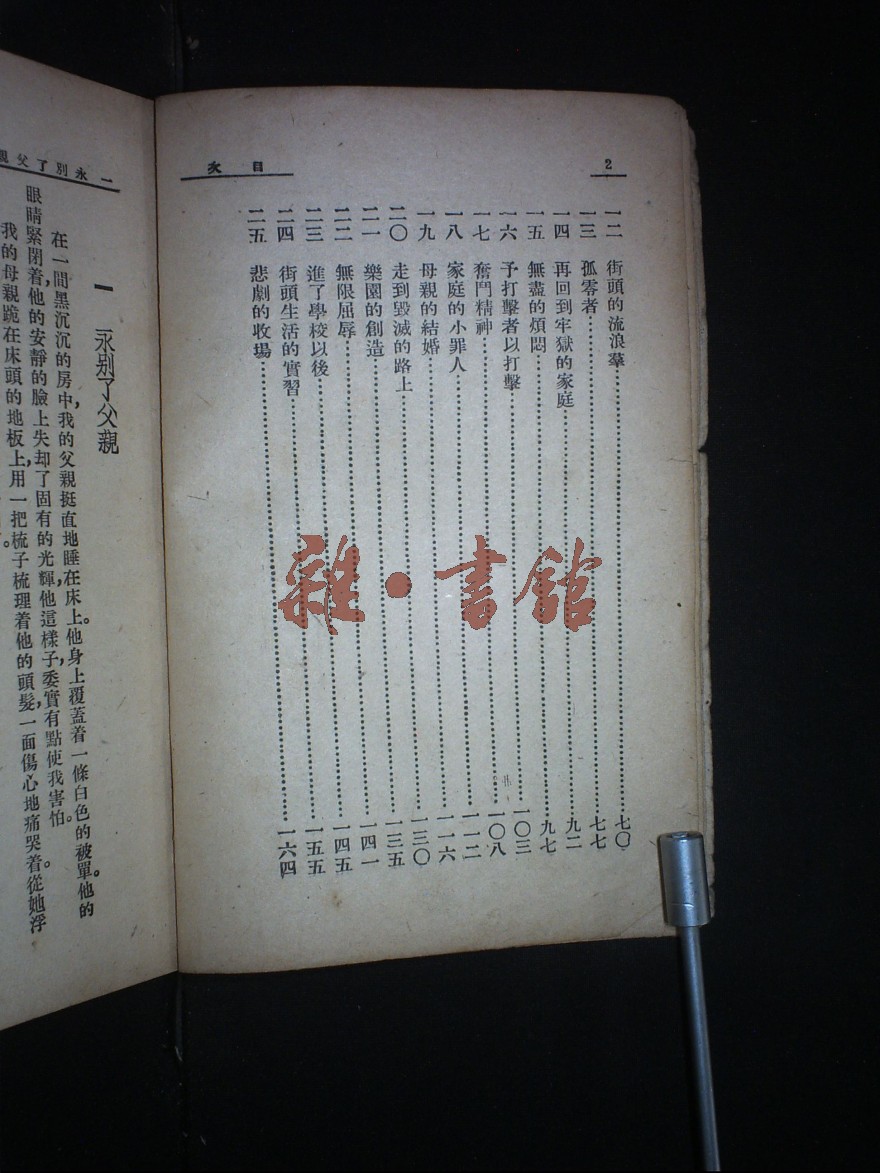 2
目次
一二 街頭的流浪羣……七〇
一三 孤零者……七七
一四 再回到牢獄的家庭……九二
一五 無盡的煩悶……九七
一六 予打擊者以打擊……一〇三
一七 奮鬥精神……一〇八
一八 家庭的小罪人……一一二
一九 母親的結婚……一一六
二〇 走到毀滅的路上……一三〇
二一 樂園的創造……一三五
二二 無限屈辱……一四一
二三 進了學校以後……一四五
二四 街頭生活的實習……一五五
二五 悲劇的收場……一六四
一 永別了父親
一 永别了父親
在一間黑沉沉的房中,我的父親挺直地睡在床上。他身上覆蓋着一條白色的被單。他的
眼睛緊閉着,他的安靜的臉上失却了固有的光輝,他這樣子,委實有點使我害怕。
我的母親跪在床頭的地板上,用一把梳子梳理着他的頭髮,一面傷心地痛哭着。從她浮
雜·書館